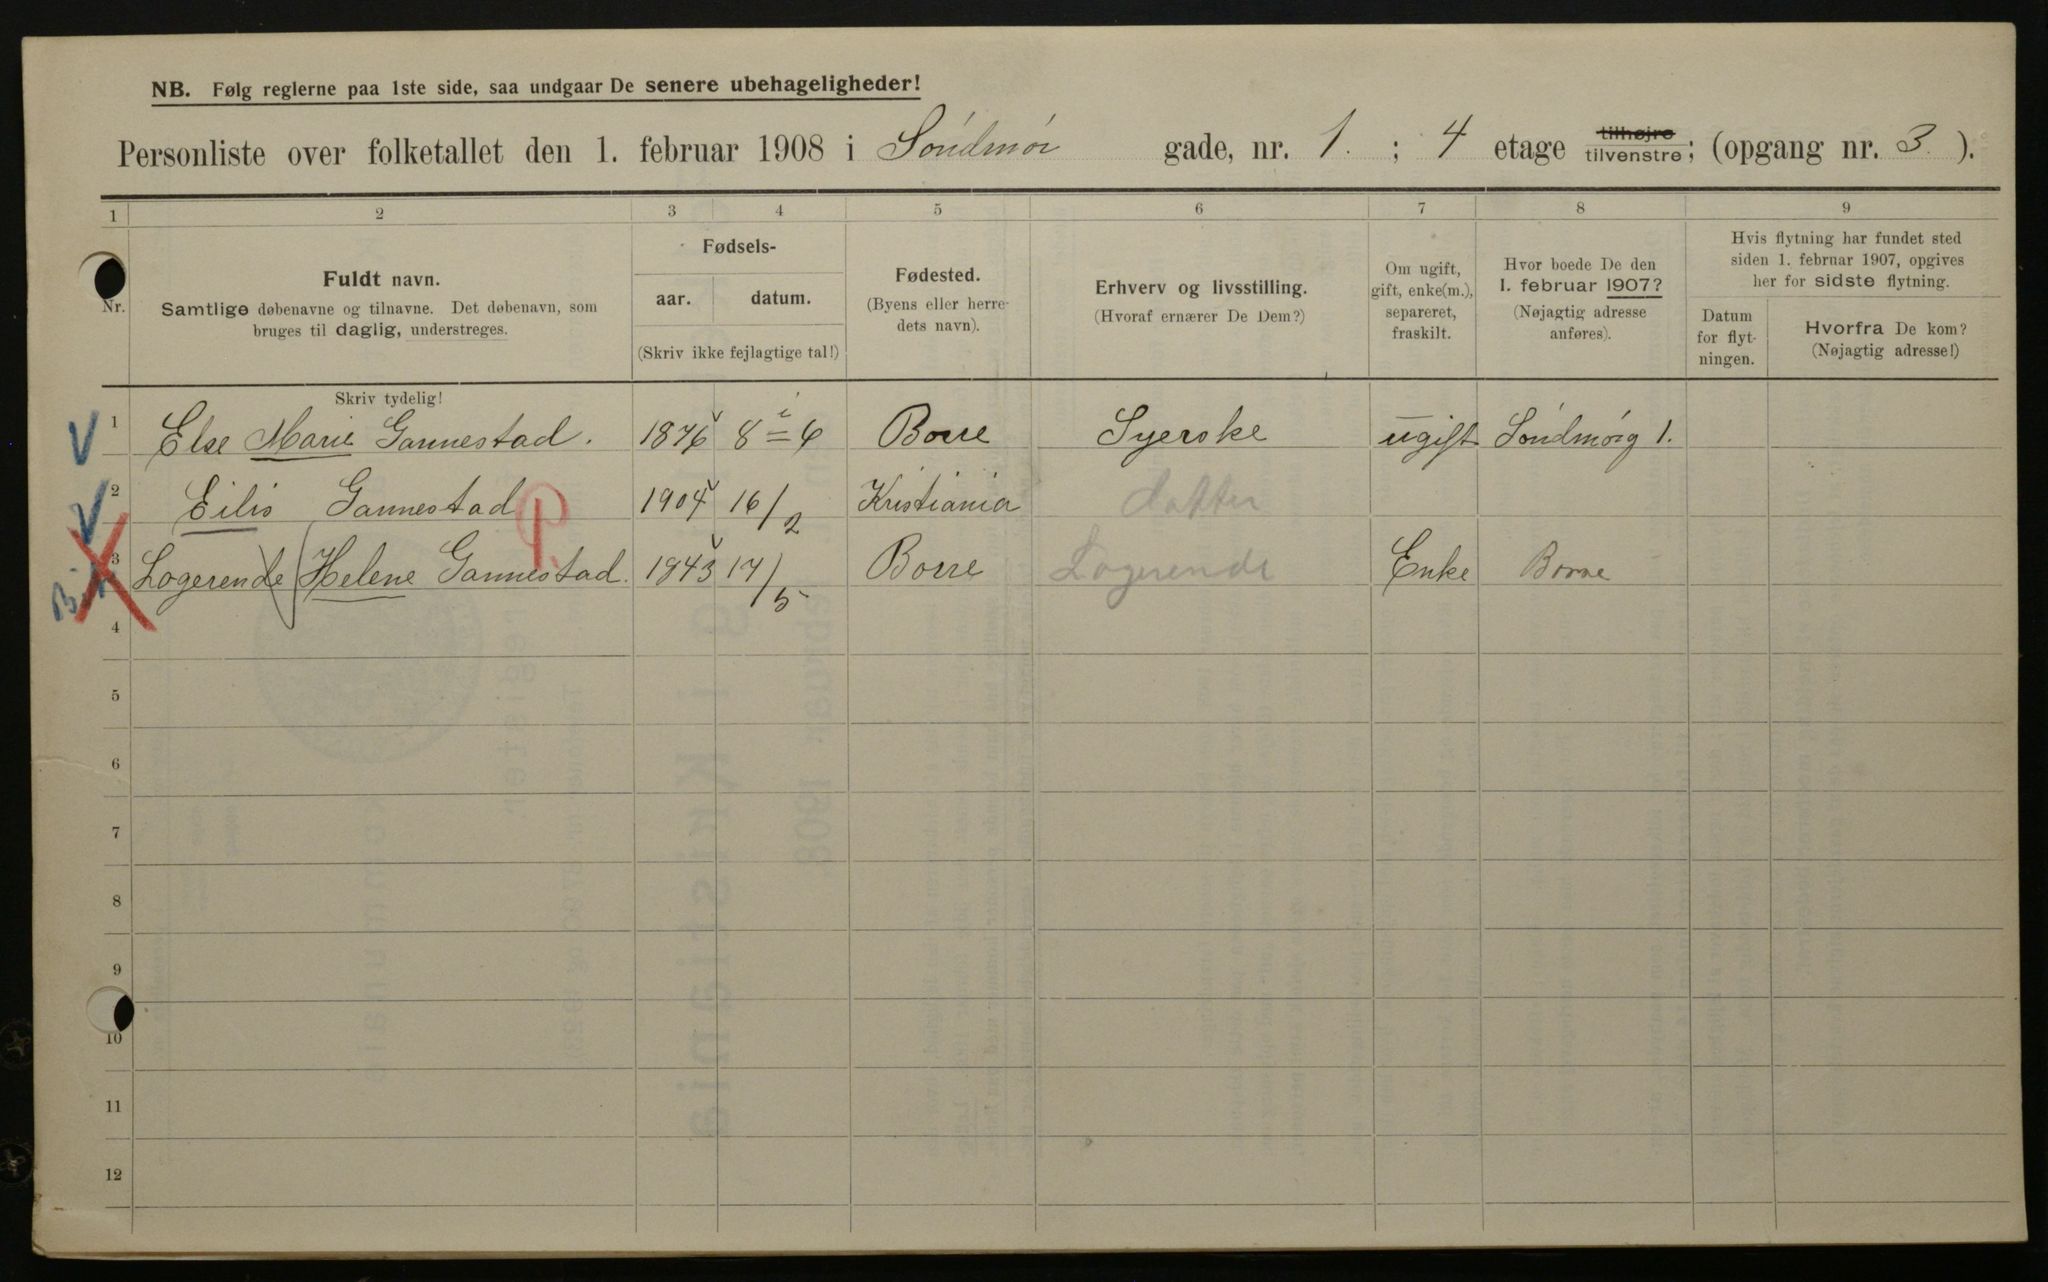 NB. Følg reglerne paa 1ste side, saa undgaar De senere ubehageligheder!
Personliste over folketallet den 1. februar 1908 i Söndmör gade, nr. 1. ; 4 etage tilhøjre tilvenstre; (opgang nr. 3. ).
1 2 3 4 5 6 7 8 9
Nr.
Fuldt navn.
Samtlige døbenavne og tilnavne. Det døbenavn, som
bruges til daglig, understreges.
Fødsels-
aar. datum.
(Skriv ikke fejlagtige tal!)
Fødested.
(Byens eller herre-
dets navn).
Erhverv og livsstilling.
(Hvoraf ernærer De Dem?)
Om ugift,
gift, enke(m.),
separeret,
fraskilt.
Hvor boede De den
1. februar 1907?
(Nøjagtig adresse
anføres).
Hvis flytning har fundet sted
siden 1. februar 1907, opgives
her for sidste flytning.
Datum
for flyt-
ningen.
Hvorfra De kom?
(Nøjagtig adresse!)
Skriv tydelig!
1 Else Marie Gannestad. 1876 8 = 6 Borre Syerske ugift Söndmörg 1.
2 Eilis Gannestad 1904 16/2 Kristiania datter
P.
3 Logerende Helene Gannestad. 1843 17/5 Borre Logerende Enke Borre
4
5
6
7
8
9
10
11
12